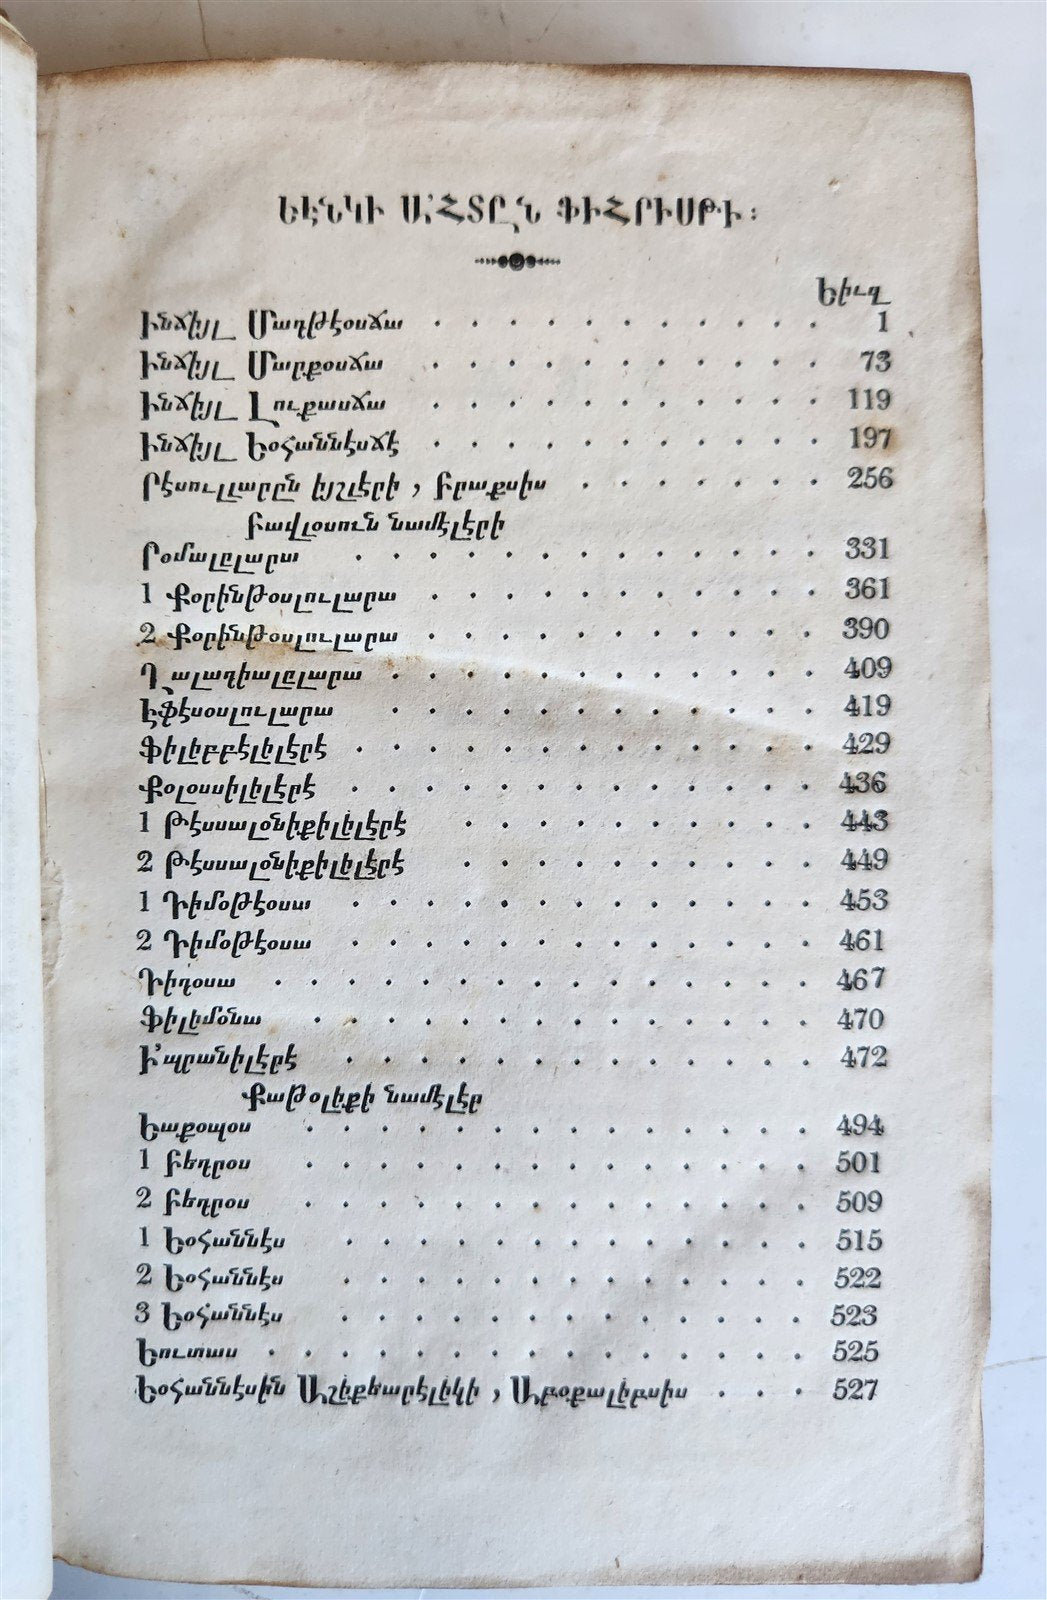 ԵԷՆԿԻ Ա՛ՀՏԸՆ ՖԻՀՐԻՍԹԻ։
Եիւզ
Ինճիյլ Մադթէօսճա . . . . . . . . . . . 1
Ինճիյլ Մարքօսճա . . . . . . . . . . . 73
Ինճիյլ Լուքասճա . . . . . . . . . . . 119
Ինճիյլ Եօհաննէսճէ . . . . . . . . . . . 197
Րէսուլլարըն իշլէրի , Բրաքսիս . . . . . . . 256
Բավլօսուն նամէլէրի
Րօմալըլարա . . . . . . . . . . . . . 331
1 Քօրինթօսլուլարա . . . . . . . . . . . 361
2 Քօրինթօսլուլարա . . . . . . . . . . . 390
Ղալադիալըլարա . . . . . . . . . . . . 409
Էֆէսօսլուլարա . . . . . . . . . . . . 419
Ֆիլիբբէլիլէրէ . . . . . . . . . . . . . 429
Քօլօսսիլիլէրէ . . . . . . . . . . . . . 436
1 Թէսսալօնիքիլիլէրէ . . . . . . . . . . 443
2 Թէսսալօնիքիլիլէրէ . . . . . . . . . . 449
1 Դիմօթէօսա . . . . . . . . . . . . . 453
2 Դիմօթէօսա . . . . . . . . . . . . . 461
Դիդօսա . . . . . . . . . . . . . . . 467
Ֆիլիմօնա . . . . . . . . . . . . . . 470
Ի՛պրանիլէրէ . . . . . . . . . . . . . 472
Քաթօլիքի նամէլէր
Եաքօպօս . . . . . . . . . . . . . . 494
1 Բեդրօս . . . . . . . . . . . . . . 501
2 Բեդրօս . . . . . . . . . . . . . . 509
1 Եօհաննէս . . . . . . . . . . . . . 515
2 Եօհաննէս . . . . . . . . . . . . . 522
3 Եօհաննէս . . . . . . . . . . . . . 523
Եուտաս . . . . . . . . . . . . . . . 525
Եօհաննէսին Աշիքեարէլիկի , Աբօքալիբսիս . . . 527